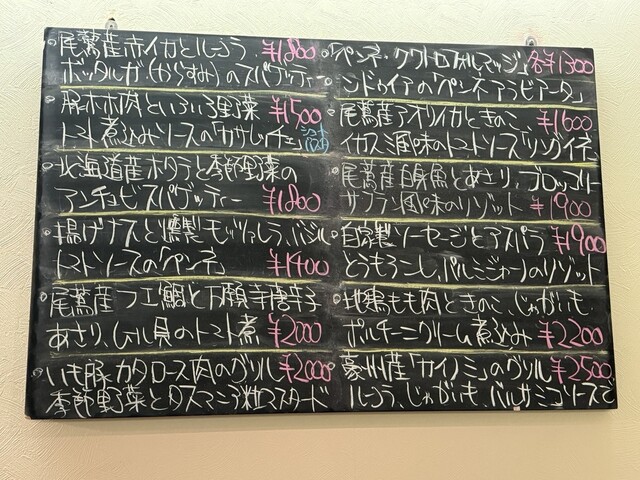 尾鷲産赤イカとルッコラ、¥1800
ボッタルガ(からすみ)のスパゲッティー
豚ホホ肉といろいろ野菜 ¥1500
トマト煮込みソースの「カサレッチェ」
北海道産ホタテと季節野菜の
アンチョビスパゲッティー ¥1800
揚げナスと燻製モッツァレラ、バジル
トマトソースの「ペンネ」 ¥1400
尾鷲産フエ鯛と万願寺唐辛子
あさり、ムール貝のトマト煮 ¥2000
いも豚カタロース肉のグリル ¥2000
季節野菜とタスマニア粒マスタード
「ペンネ・クワトロフォルマッジ」各¥1300
シンドゥイアの「ペンネアラビアータ」
尾鷲産アオリイカときのこ、¥1600
イカスミ風味のトマトソース「リングイネ」
尾鷲産白身魚とあさり、ブロッコリー
サフラン風味のリゾット ¥1900
自家製ソーセージとアスパラ ¥1900
とうもろこし、パルミジャーノのリゾット
地鶏もも肉ときのこ、じゃがいも
ポルチーニクリーム煮込み ¥2200
豪州産「カイノミ」のグリル ¥2500
ルッコラ、じゃがいも、バルサミコソースで